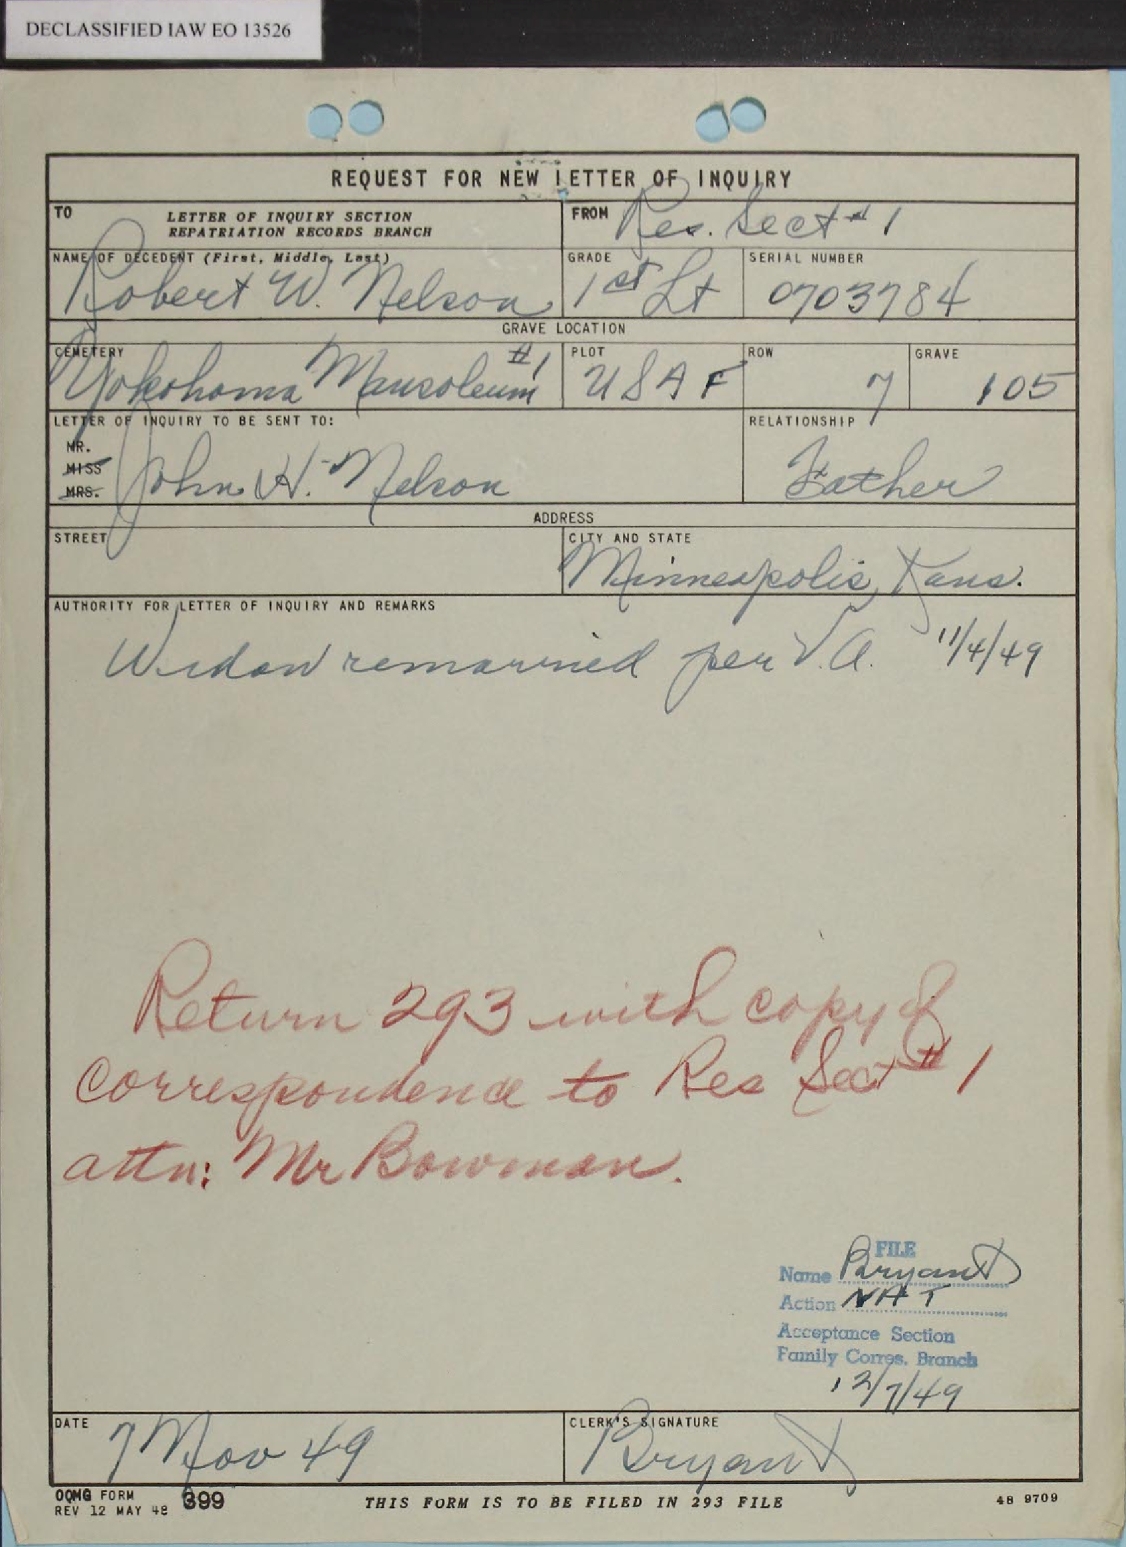 DECLASSIFIED IAW EO 13526
REQUEST FOR NEW LETTER OF INQUIRY
TO LETTER OF INQUIRY SECTION
REPATRIATION RECORDS BRANCH
FROM Res. Sect #1
NAME OF DECEDENT (First, Middle, Last)
Robert W. Nelson
GRADE
1st Lt
SERIAL NUMBER
0703784
GRAVE LOCATION
CEMETERY
Yokohoma Mausoleum #1
PLOT
USAF
ROW
7
GRAVE
105
LETTER OF INQUIRY TO BE SENT TO:
MR.
MISS
MRS.
John H. Nelson
RELATIONSHIP
Father
ADDRESS
STREET
CITY AND STATE
Minneapolis, Kans.
AUTHORITY FOR LETTER OF INQUIRY AND REMARKS
Widow remarried per V.A. 11/4/49
Return 293 with copy of
correspondence to Res Sect #1
attn: Mr Bowman.
FILE
Name Bryant
Action NAT
Acceptance Section
Family Corres. Branch
12/7/49
DATE
7 Nov 49
CLERK'S SIGNATURE
Bryant
OQMG FORM 399
REV 12 MAY 48
THIS FORM IS TO BE FILED IN 293 FILE
48 9709